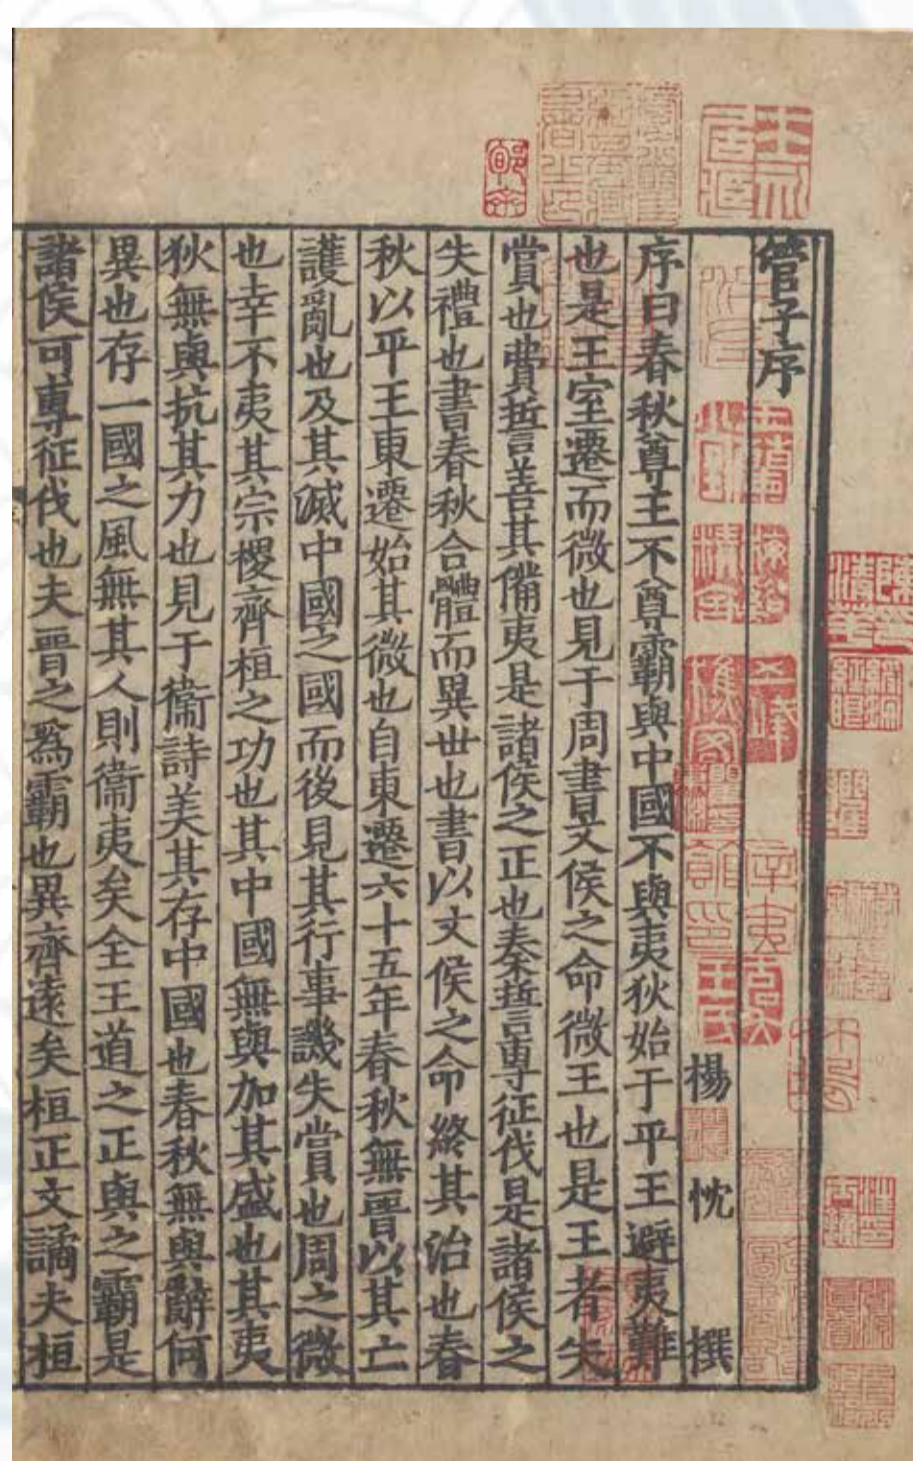 管子序
楊忱撰
序曰春秋尊王不尊霸與中國不與夷狄始于平王避夷難
也是王室遷而微也見于周書文侯之命微王也是王者失
賞也費誓善其備夷是諸侯之正也秦誓專征伐是諸侯之
失禮也書春秋合體而異世也書以文侯之命終其治也春
秋以平王東遷始其微也自東遷六十五年春秋無晋以其亡
護亂也及其滅中國之國而後見其行事譏失賞也周之微
也幸不夷其宗稷齊桓之功也其中國無與加其盛也其夷
狄無與抗其力也見于衛詩美其存中國也春秋無與辭何
異也存一國之風無其人則衛夷矣全王道之正與之霸是
諸侯可專征伐也夫晋之爲霸也異齊遠矣桓正文譎夫桓